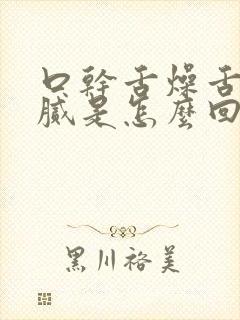 口幹舌燥舌
膩是怎麼回
黑川裕美